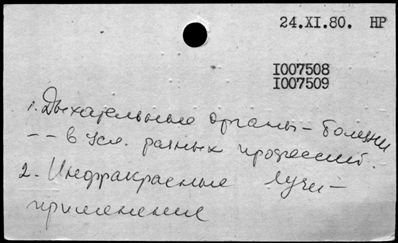 24.XI.80. НР
I007508
I007509
1. Дыхательные органы – болезни
-- в усл. разных профессий.
2. Инфракрасные лучи –
применение